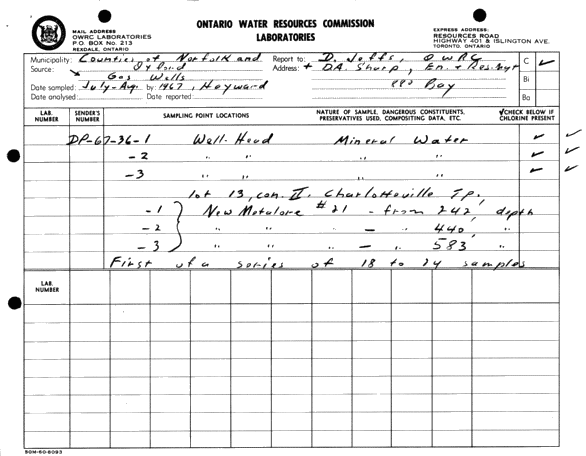 ONTARIO WATER RESOURCES COMMISSION
LABORATORIES
MAIL ADDRESS
OWRC LABORATORIES
P.O. BOX No. 213
REXDALE, ONTARIO
EXPRESS ADDRESS:
RESOURCES ROAD
HIGHWAY 401 & ISLINGTON AVE.
TORONTO, ONTARIO
Municipality: Counties of Norfolk and Report to: D. Jeffs, OWRC C ✓
Source: Oxford Address: + D.A. Sharp, En. & Res. Mgt
Gas Wells 880 Bay Bi
Date sampled: July-Aug. by: 1967, Heyward
Date analysed: Date reported: Ba
LAB. NUMBER SENDER'S NUMBER SAMPLING POINT LOCATIONS NATURE OF SAMPLE, DANGEROUS CONSTITUENTS, PRESERVATIVES USED, COMPOSITING DATA, ETC. ✓CHECK BELOW IF CHLORINE PRESENT
DP-67-36-1 Well Head Mineral Water ✓ ✓
-2 " " " " ✓ ✓
-3 " " " " ✓ ✓
lot 13, con. II, Charlotteville Tp.
-1 New Metalore #21 - from 242' depth
-2 " " " - " 440' "
-3 " " " - " 583' "
First of a series of 18 to 24 samples
LAB. NUMBER
50M-60-6093